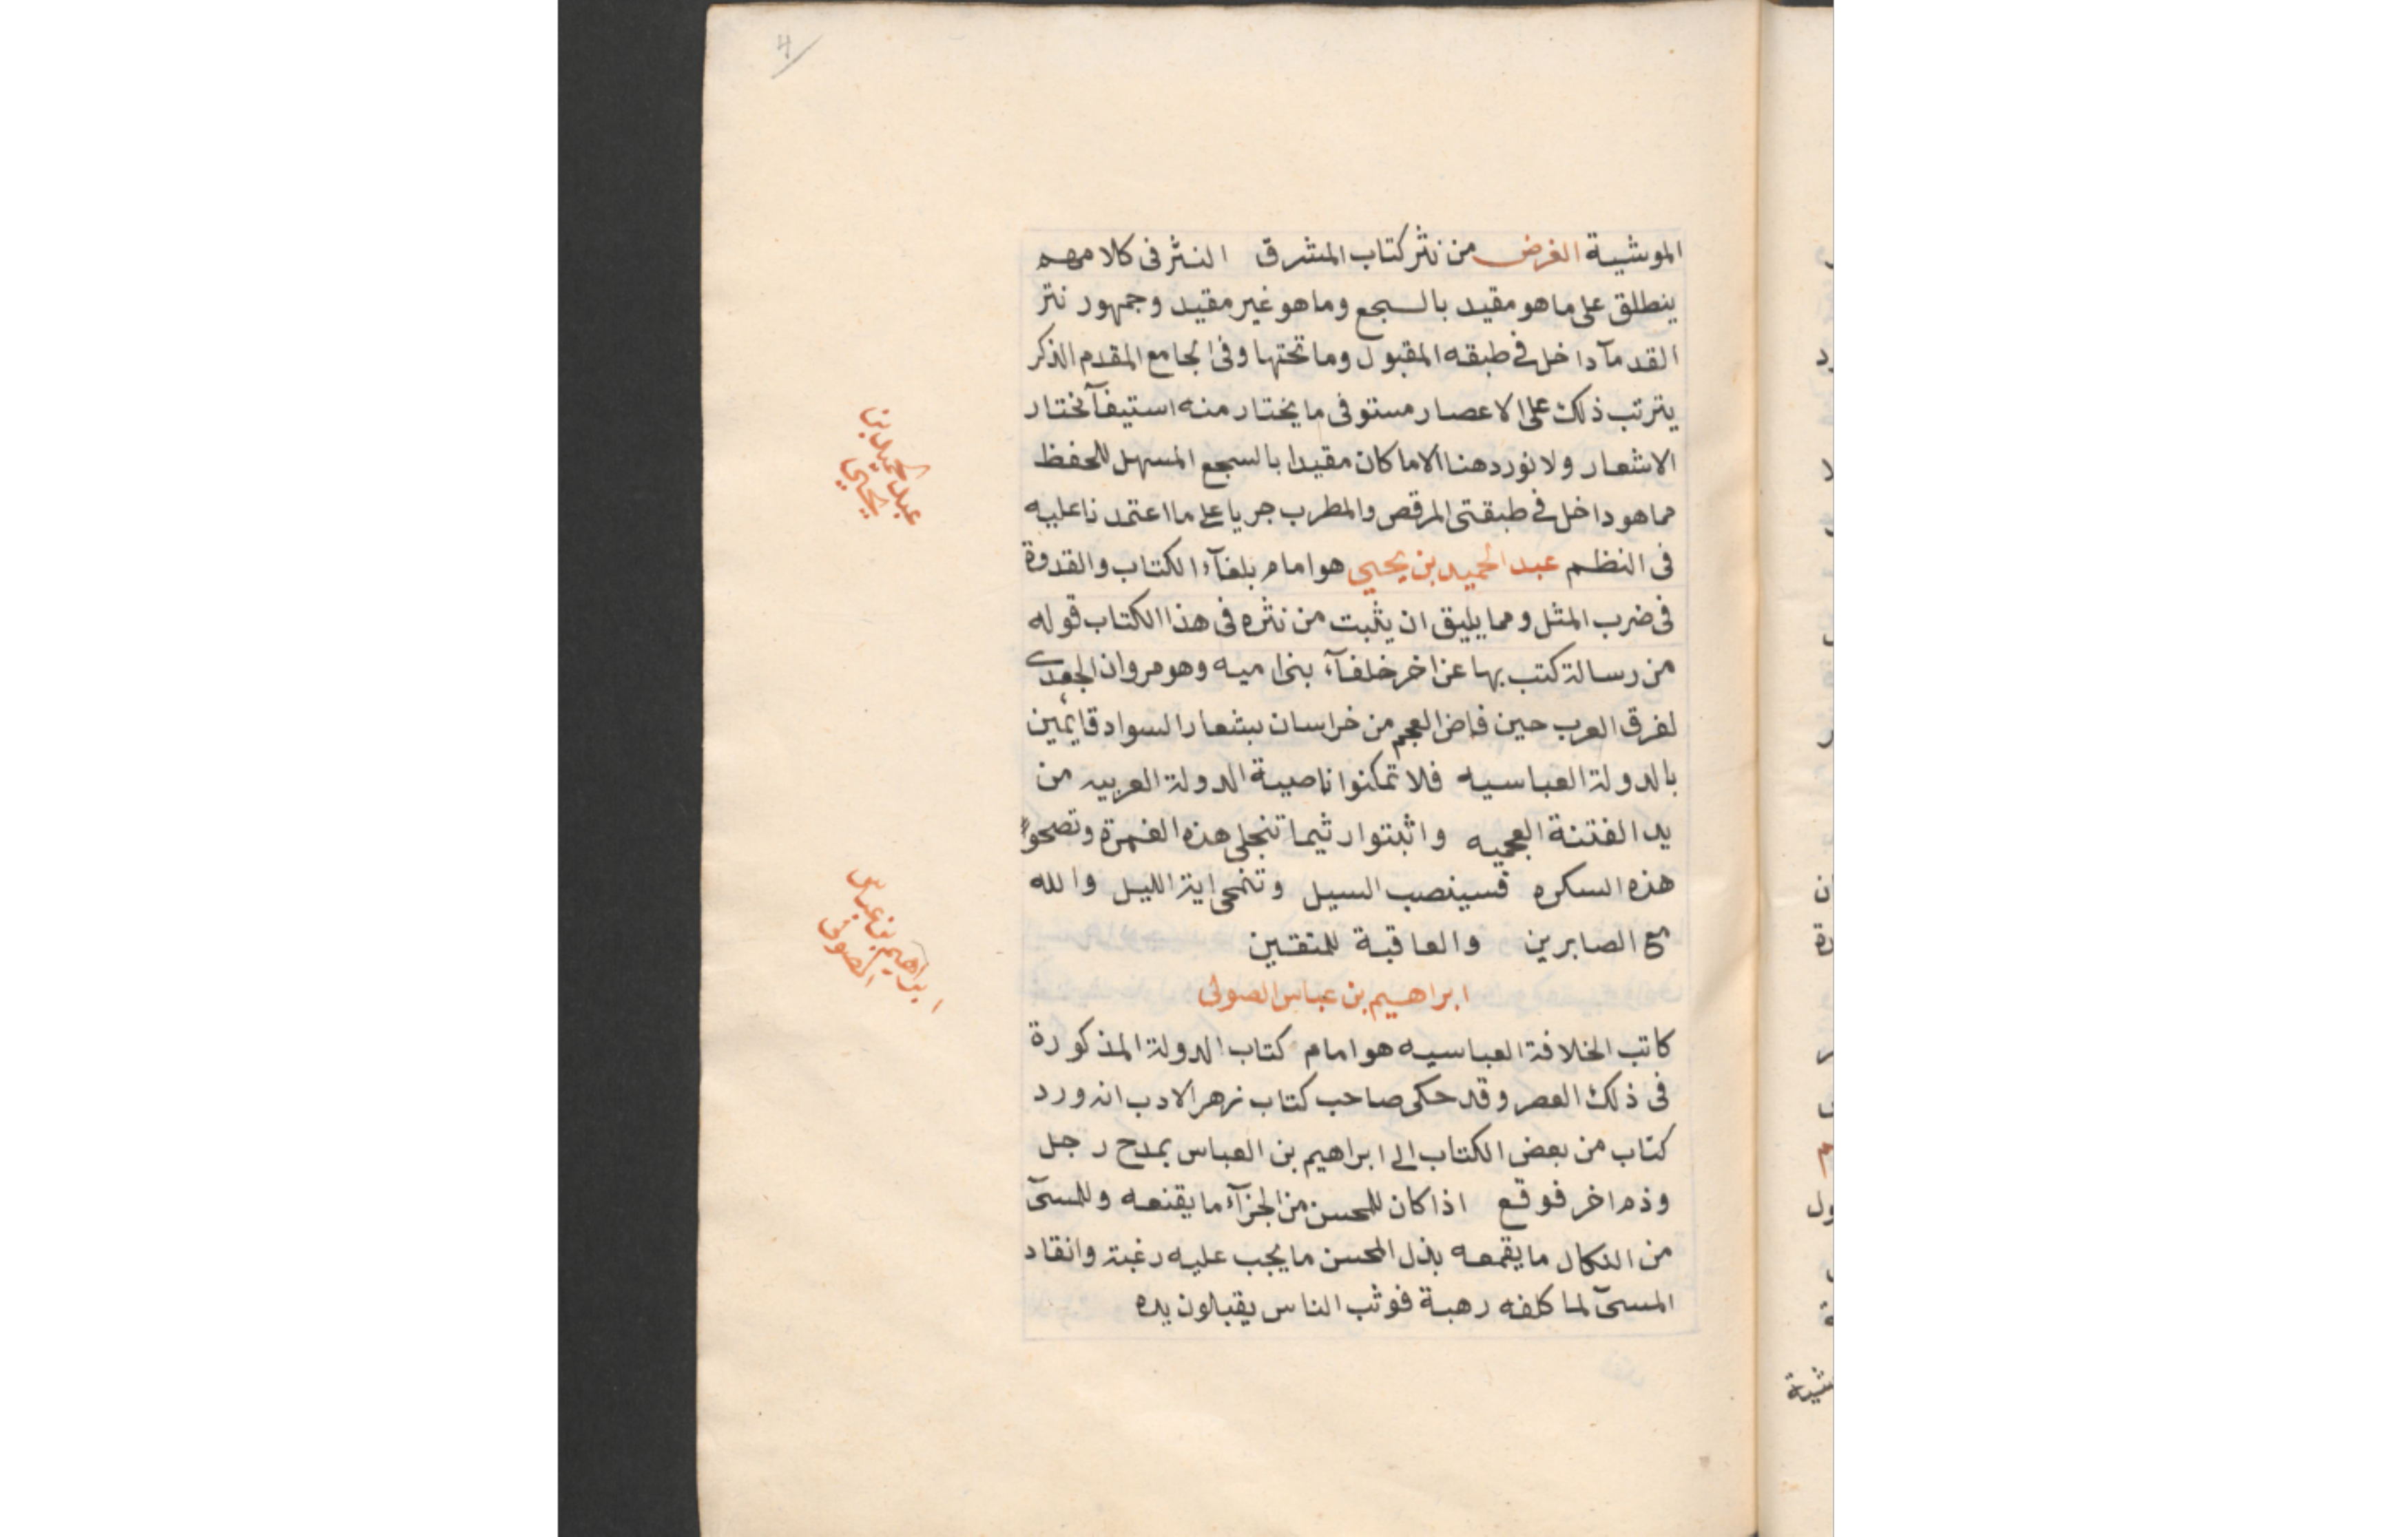 4
الموشية الغرض من نثر كتاب المشرق النثر فى كلامهم
ينطلق على ما هو مقيد بالسجع وما هو غير مقيد وجمهور نثر
القدمآ داخل فى طبقه المقبول وما تحتها وفى الجامع المقدم الذكر
يترتب ذلك على الاعصار مستوفى ما يختار منه استيفآ نختار
الاشعار ولا نورد هنا الا ما كان مقيدا بالسجع المسهل للحفظ
مما هو داخل فى طبقتى المرقص والمطرب جريا على ما اعتمدنا عليه
فى النظم عبد الحميد بن يحيى هو امام بلغآء الكتاب والقدوة
فى ضرب المثل ومما يليق ان يثبت من نثره فى هذا الكتاب قوله
من رسالة كتب بها عن اخر خلفآء بنى اميه وهو مروان الجعدى
لفرق العرب حين فاض العجم من خراسان بشعار السواد قايمين
بالدولة العباسيه فلا تمكنوا ناصية الدولة العربيه من
يد الفتنة العجميه واثبتوا ريثما تنجلى هذه الغمرة وتصحوا
هذه السكره فسينصب السيل وتنمحى اية الليل والله
مع الصابرين والعاقبة للمتقين
ابراهيم بن عباس الصولى
كاتب الخلافة العباسيه هو امام كتاب الدولة المذكورة
فى ذلك العصر وقد حكى صاحب كتاب زهر الادب انه ورد
كتاب من بعض الكتاب الى ابراهيم بن العباس بمدح رجل
وذم اخر فوقع اذا كان للمحسن من الجزآء ما يقنعه وللمسئ
من النكال ما يقمعه بذل المحسن ما يجب عليه رغبة وانقاد
المسئ لما كلفه رهبة فوثب الناس يقبلون يده
عبد الحميد بن
يحيى
ابراهيم بن عباس
الصولى